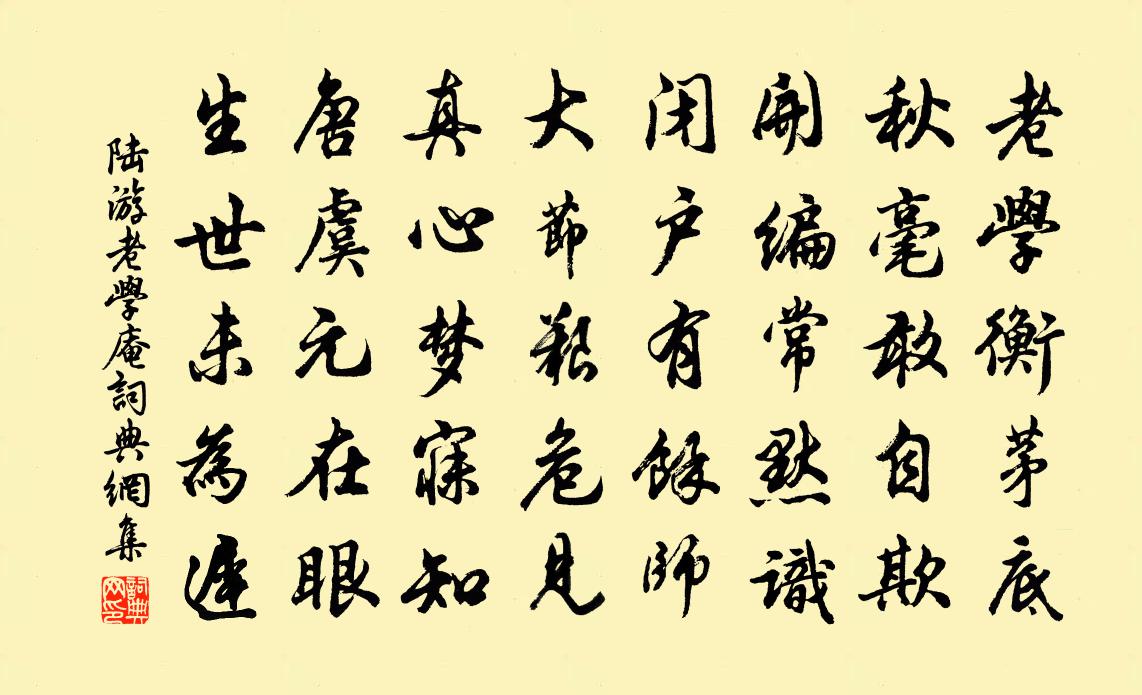 老學衡茅底
秋毫敢自欺
開編常默識
闭户有餘師
大節艱危見
真心梦寐知
唐虞元在眼
生世未為遲
陆游老學庵詞典網集
詞典网印